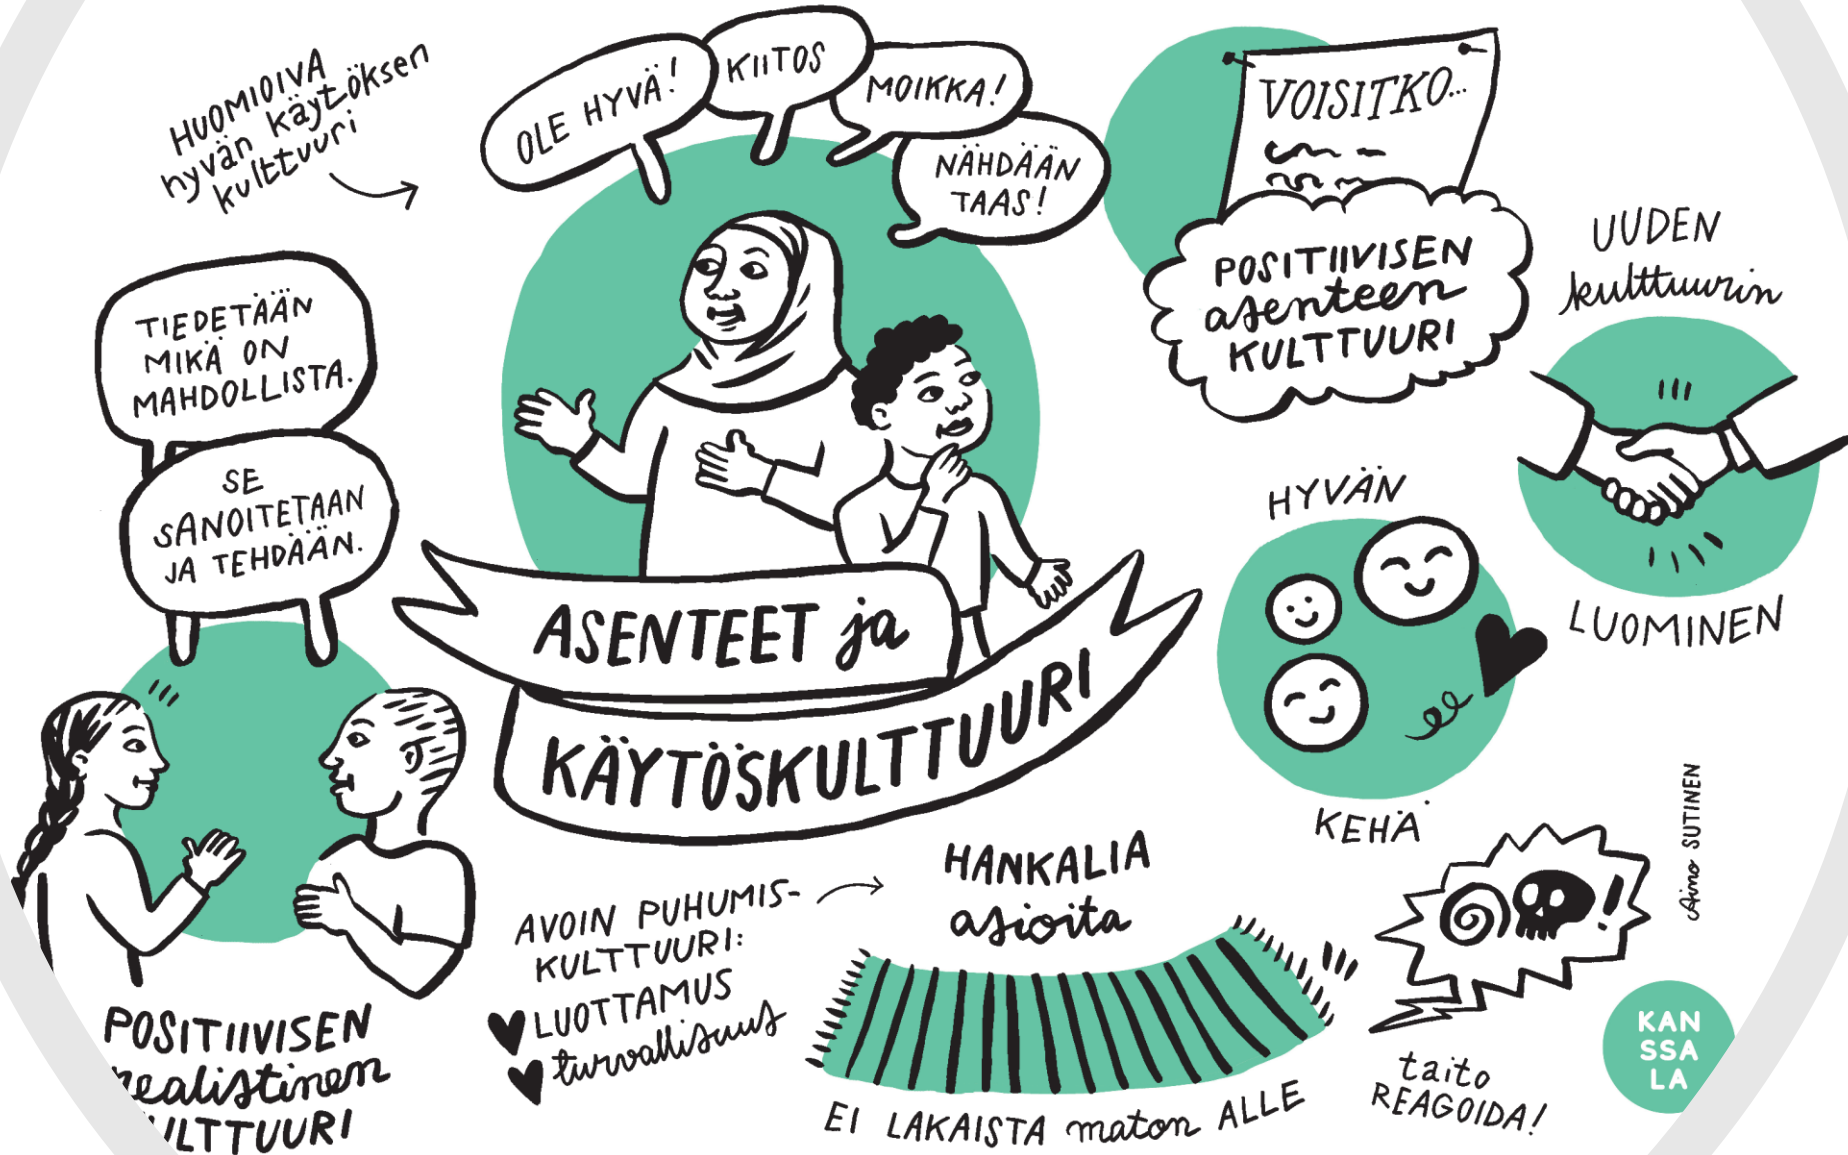 HUOMIOIVA
hyvän käytöksen
kulttuuri
OLE HYVÄ!
KIITOS
MOIKKA!
NÄHDÄÄN
TAAS!
VOISITKO...
POSITIIVISEN
asenteen
KULTTUURI
UUDEN
kulttuurin
LUOMINEN
TIEDETÄÄN
MIKÄ ON
MAHDOLLISTA.
SE
SANOITETAAN
JA TEHDÄÄN.
ASENTEET ja
KÄYTÖSKULTTUURI
HYVÄN
KEHÄ
POSITIIVISEN
realistinen
KULTTUURI
AVOIN PUHUMIS-
KULTTUURI:
LUOTTAMUS
turvallisuus
HANKALIA
asioita
EI LAKAISTA maton ALLE
!
taito
REAGOIDA!
Aino SUTINEN
KAN
SSA
LA